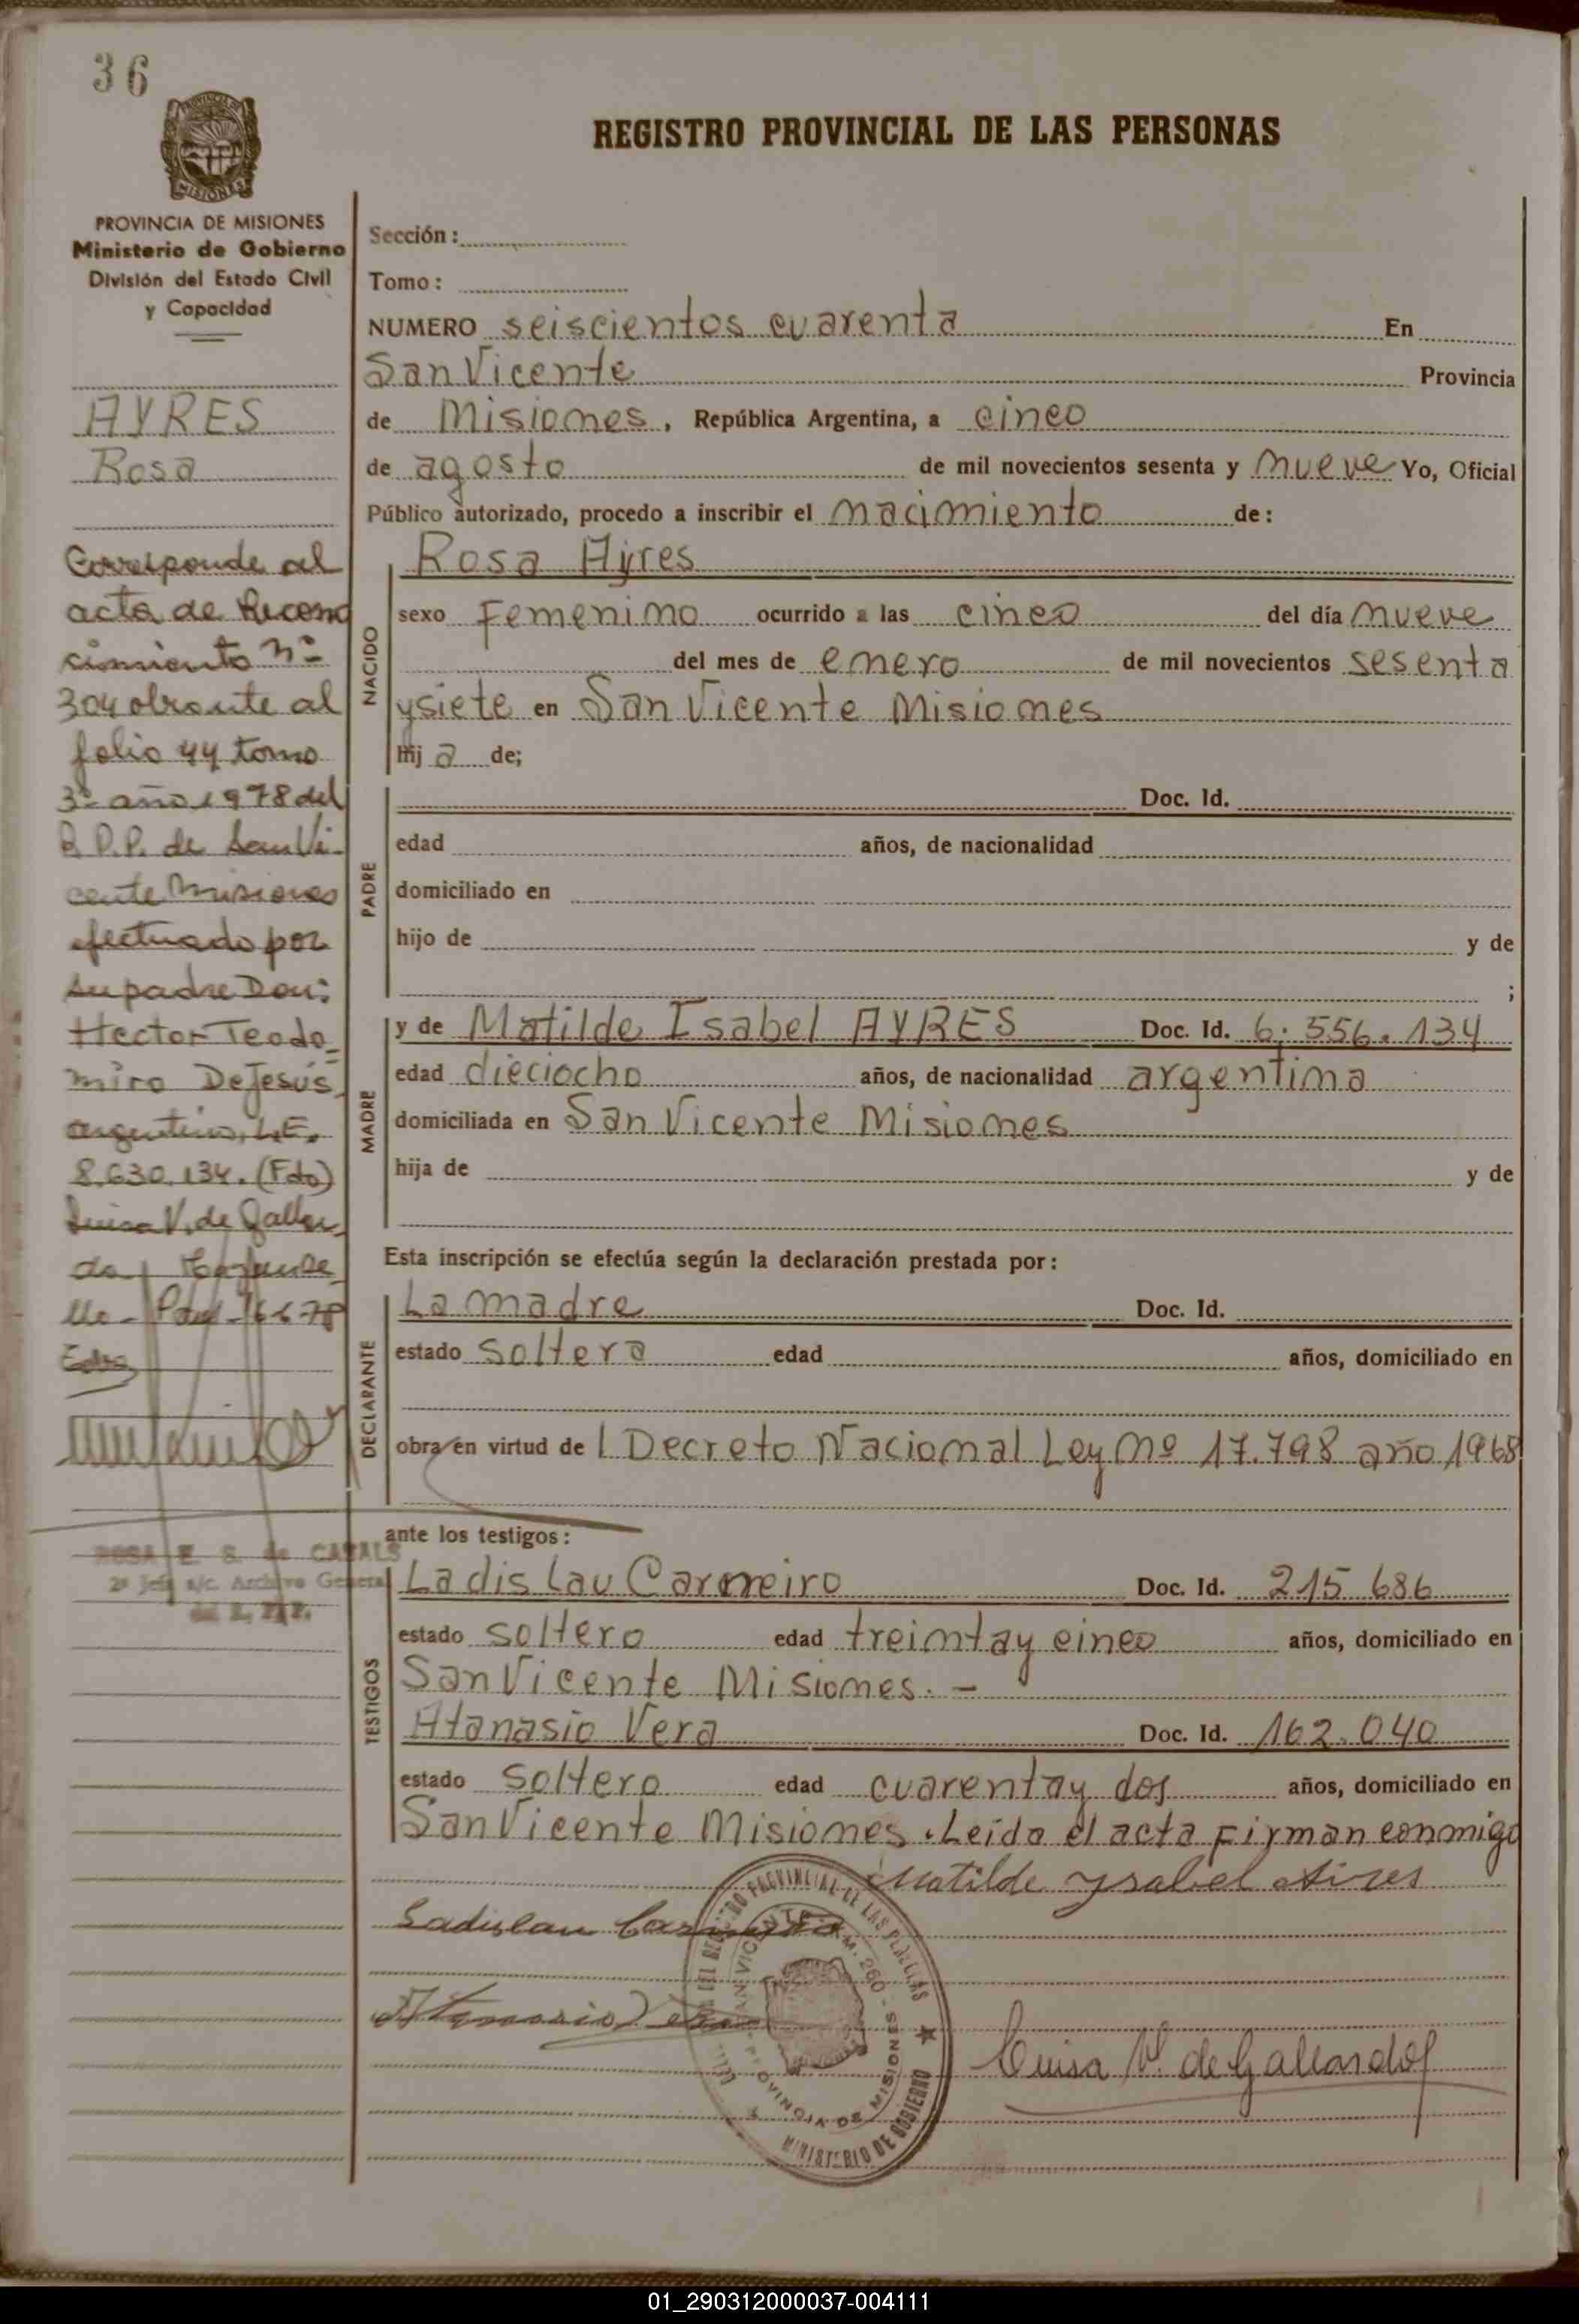 36
PROVINCIA DE MISIONES
Ministerio de Gobierno
División del Estado Civil
y Capacidad
AYRES
Rosa
Corresponde al
acta de Recono
cimiento nº
304 obrante al
folio 44 tomo
3º año 1978 del
R.P.P. de San Vi-
cente Misiones
efectuado por
su padre Don:
Hector Teodo=
miro DeJesús
argentino, L.E.
8.630.134. (Fdo)
Luisa V. de Gallar
do
16-6-78
ROSA E. S. de CASALS
2ª Jefe a/c. Archivo General
del R. P. P.
REGISTRO PROVINCIAL DE LAS PERSONAS
Sección:
Tomo:
NUMERO seiscientos cuarenta En
San Vicente Provincia
de Misiones, República Argentina, a cinco
de agosto de mil novecientos sesenta y nueve Yo, Oficial
Público autorizado, procedo a inscribir el nacimiento de:
NACIDO
Rosa Ayres
sexo Femenino ocurrido a las cinco del día nueve
del mes de enero de mil novecientos sesenta
y siete en San Vicente Misiones
hij a de;
PADRE
Doc. Id.
edad años, de nacionalidad
domiciliado en
hijo de y de
;
MADRE
y de Matilde Isabel AYRES Doc. Id. 6.556.134
edad dieciocho años, de nacionalidad argentina
domiciliada en San Vicente Misiones
hija de y de
Esta inscripción se efectúa según la declaración prestada por:
DECLARANTE
La madre Doc. Id.
estado soltera edad años, domiciliado en
obra en virtud de l Decreto Nacional Ley nº 17.798 año 1968
ante los testigos:
TESTIGOS
Ladislau Carneiro Doc. Id. 215.686
estado soltero edad treinta y cinco años, domiciliado en
San Vicente Misiones. -
Atanasio Vera Doc. Id. 162.040
estado soltero edad cuarenta y dos años, domiciliado en
San Vicente Misiones. Leida el acta Firman conmigo
Matilde Ysabel Aires
Ladislau Carneiro
Atanasio Vera
REGISTRO PROVINCIAL DE LAS PERSONAS
SAN VICENTE KM. 260 - PROVINCIA DE MISIONES
MINISTERIO DE GOBIERNO
Luisa V. de Gallardo
01_290312000037-004111